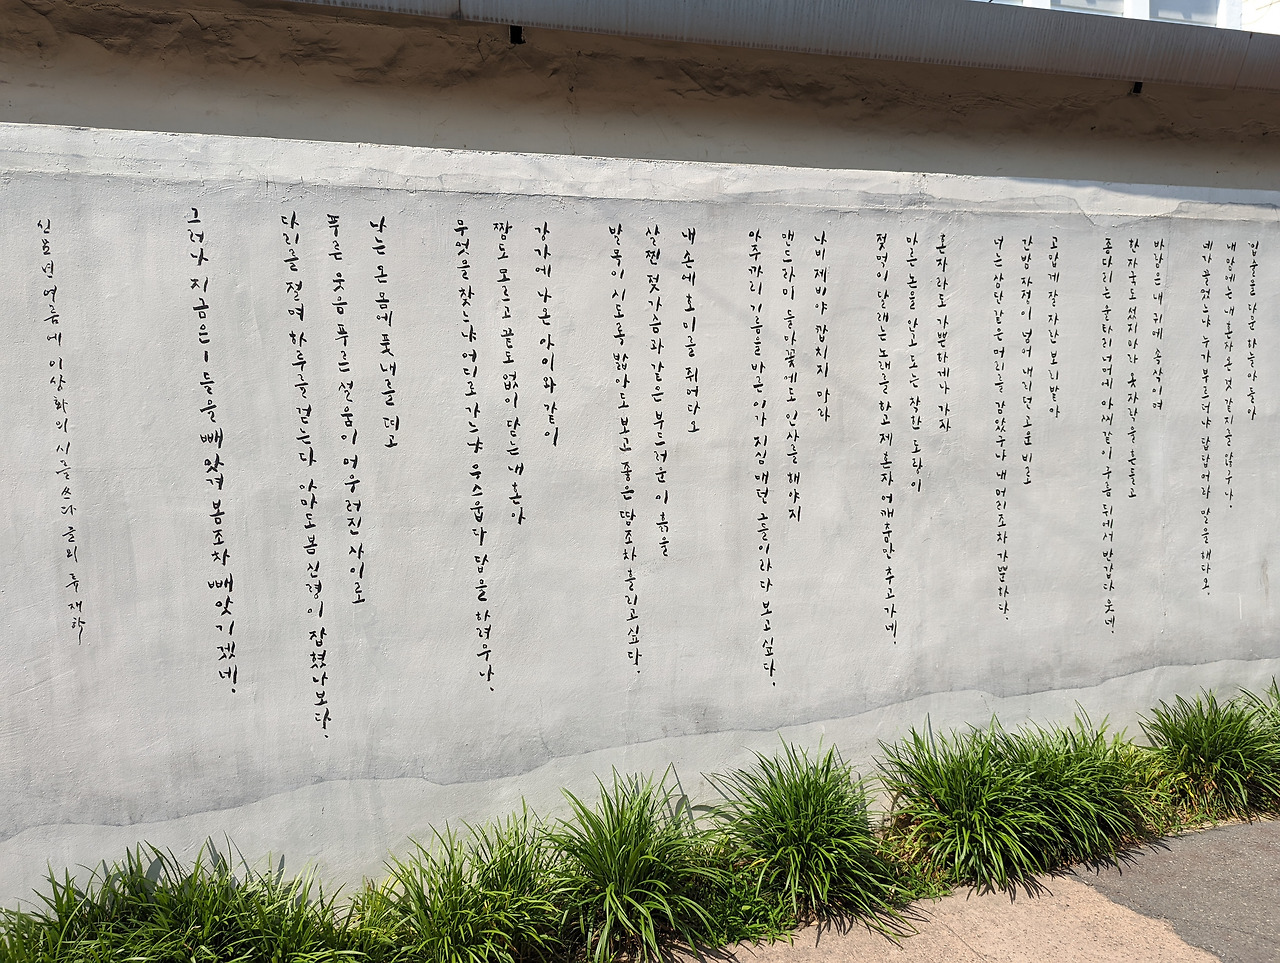 입술을 다문 하늘아 들아
내 맘에는 내 혼자 온 것 같지를 않구나
네가 끌었느냐 누가 부르더냐 답답어라 말을 해다오.
바람은 내 귀에 속삭이며
한자국도 섰지 마라 옷자락을 흔들고
종다리는 울타리 너머에 아씨같이 구름 뒤에서 반갑다 웃네.
고맙게 잘 자란 보리밭아
간밤 자정이 넘어 내리던 고운 비로
너는 삼단같은 머리를 감았구나 내 머리조차 가뿐하다.
혼자라도 가쁜하게나 가자
마른 논을 안고 도는 착한 도랑이
젖먹이 달래는 노래를 하고 제 혼자 어깨춤만 추고 가네.
나비 제비야 깝치지 마라
맨드라미 들마꽃에도 인사를 해야지
아주까리 기름을 바른 이가 지심 매던 그 들이라 다 보고싶다.
내 손에 호미를 쥐어다오
살찐 젖가슴과 같은 부드러운 이 흙을
발목이 시도록 밟아도 보고 좋은 땀조차 흘리고 싶다.
강가에 나온 아이와 같이
짬도 모르고 끝도 없이 닫는 내 혼아
무엇을 찾느냐 어디로 가느냐 우스웁다 답을 하려무나.
나는 온몸에 풋내를 띠고
푸른 웃음 푸른 설움이 어우러진 사이로
다리를 절며 하루를 걷는다 아마도 봄 신령이 잡혔나보다.
그러나 지금은 ㅡ 들을 빼앗겨 봄조차 빼앗기겠네.
신묘년 여름에 이상화의 시를 쓰다 글뫼 류재학